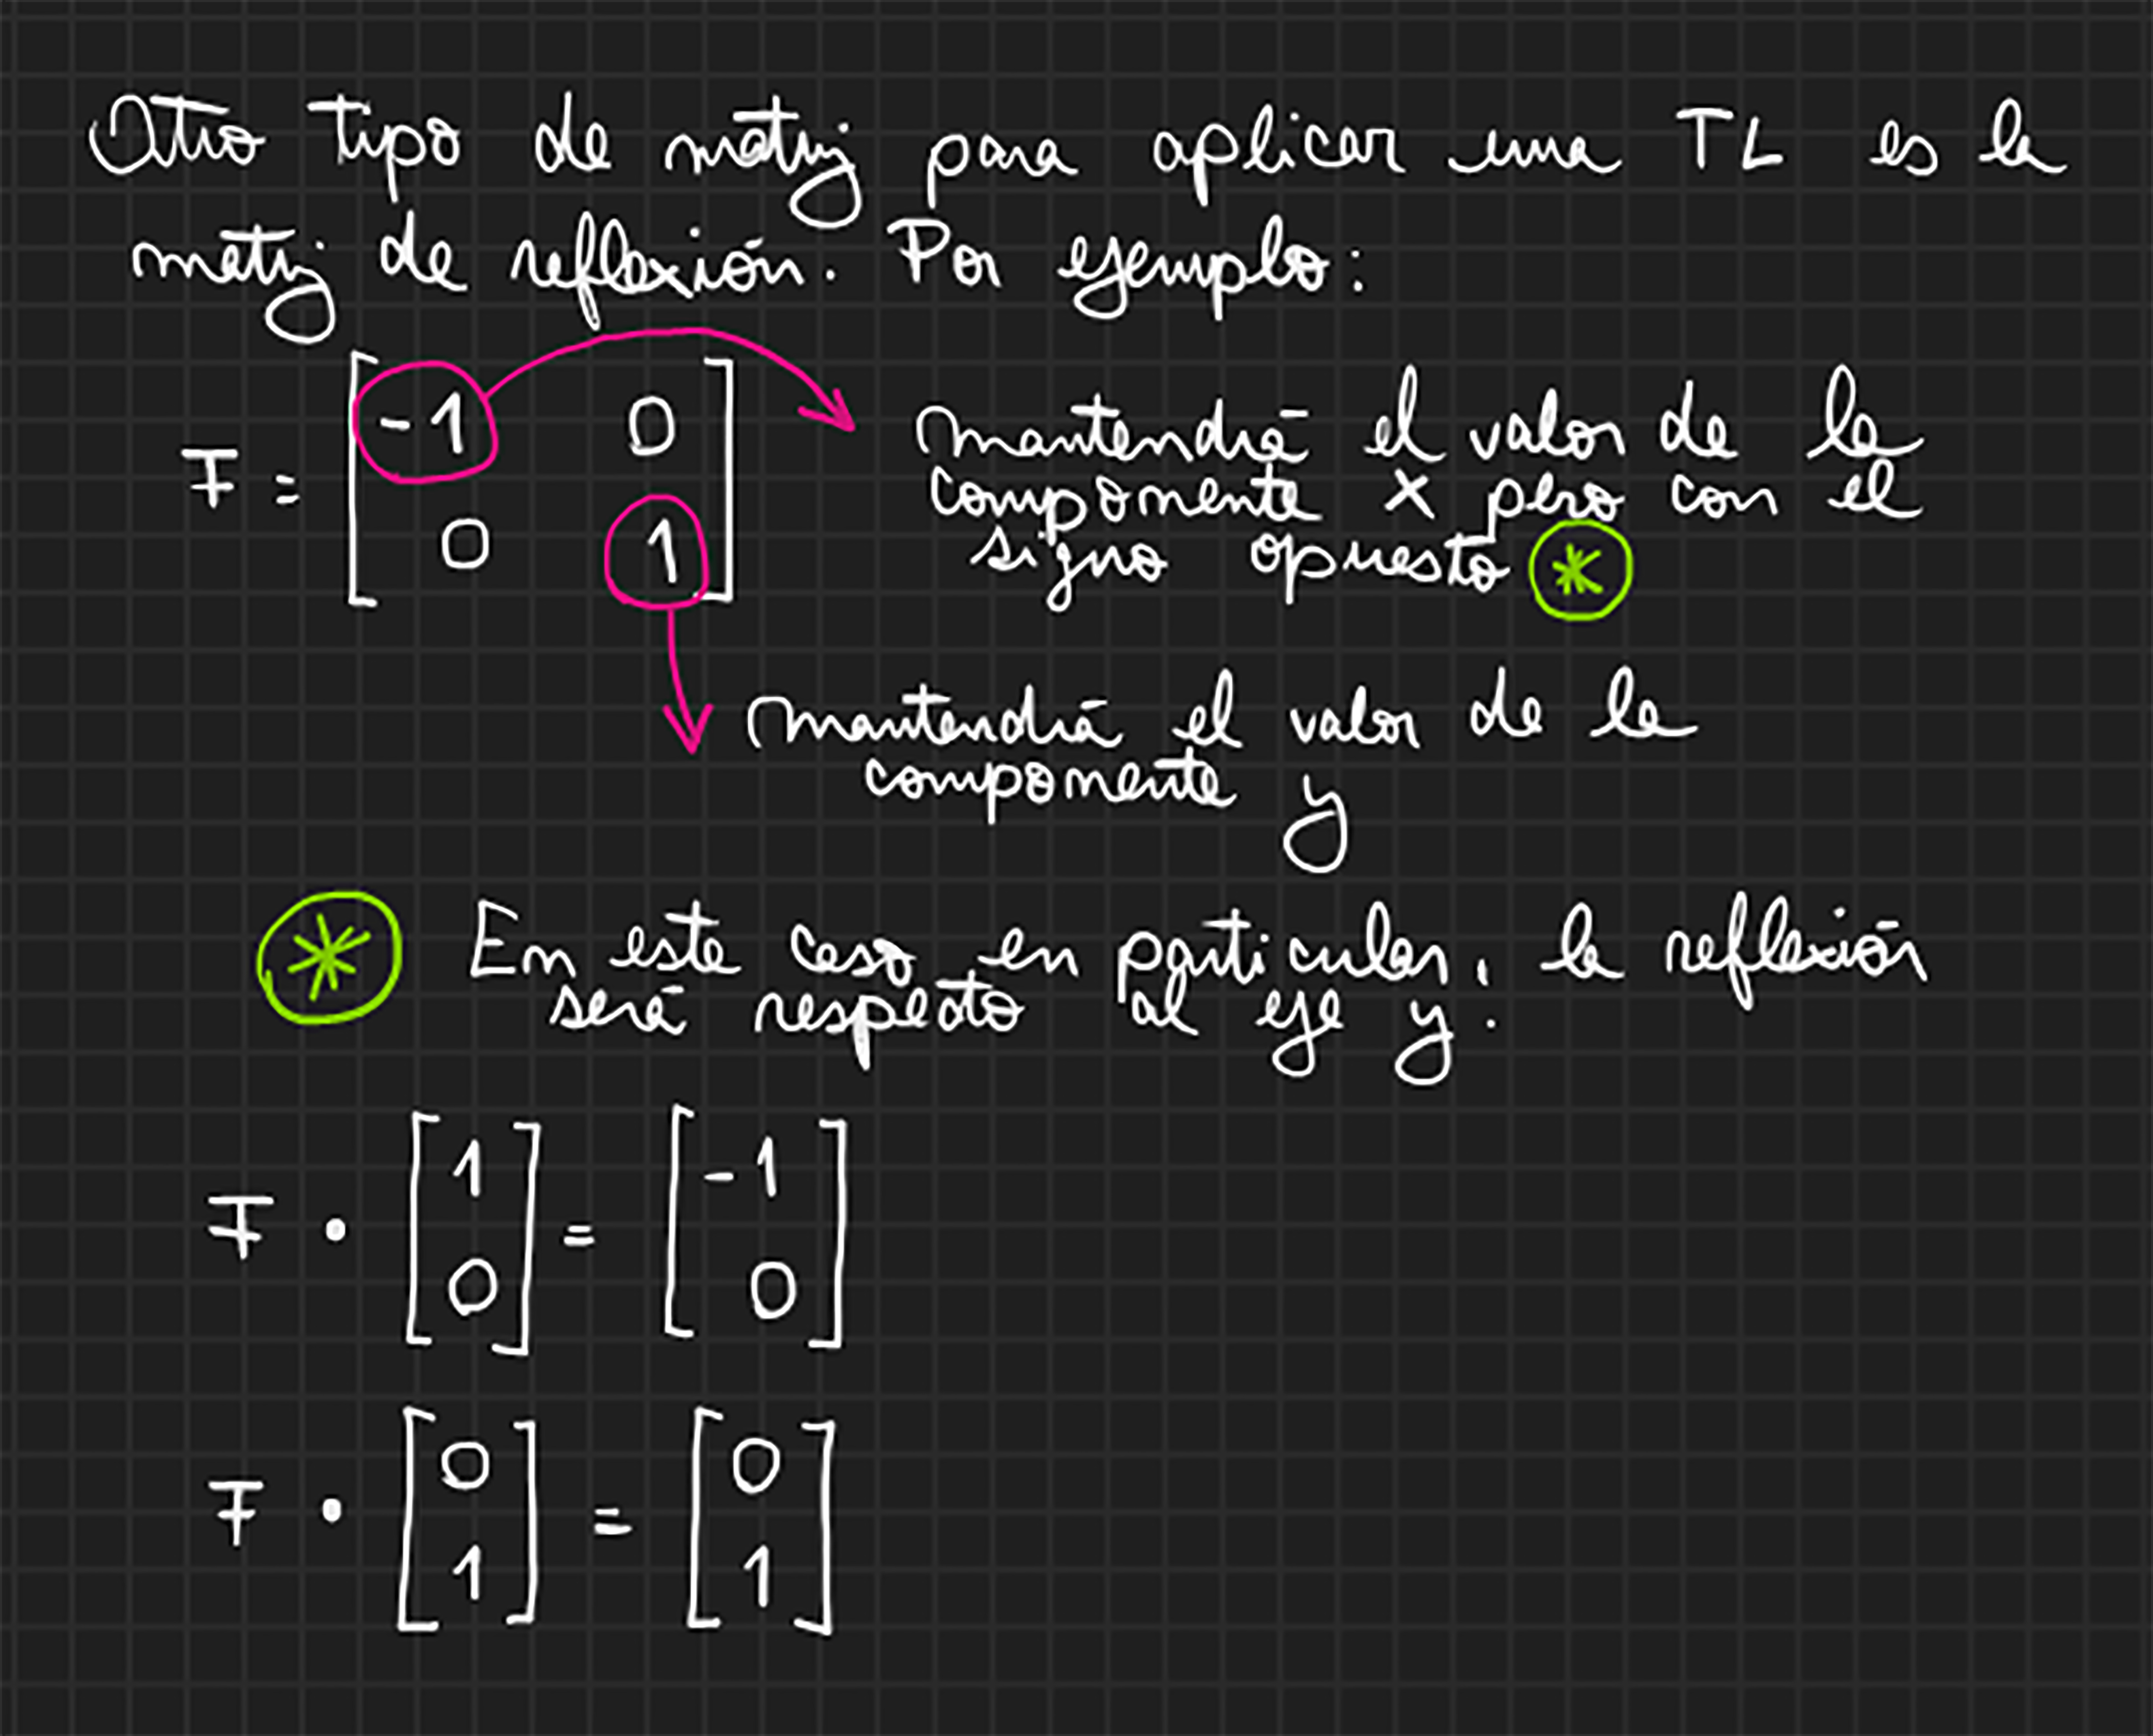 Otro tipo de matriz para aplicar una TL es la
matriz de reflexión. Por ejemplo:
F = [ -1 0
0 1 ]
mantendrá el valor de la
componente x pero con el
signo opuesto *
mantendrá el valor de la
componente y
* En este caso en particular, la reflexión
será respecto al eje y.
F · [ 1 0 ] = [ -1 0 ]
F · [ 0 1 ] = [ 0 1 ]